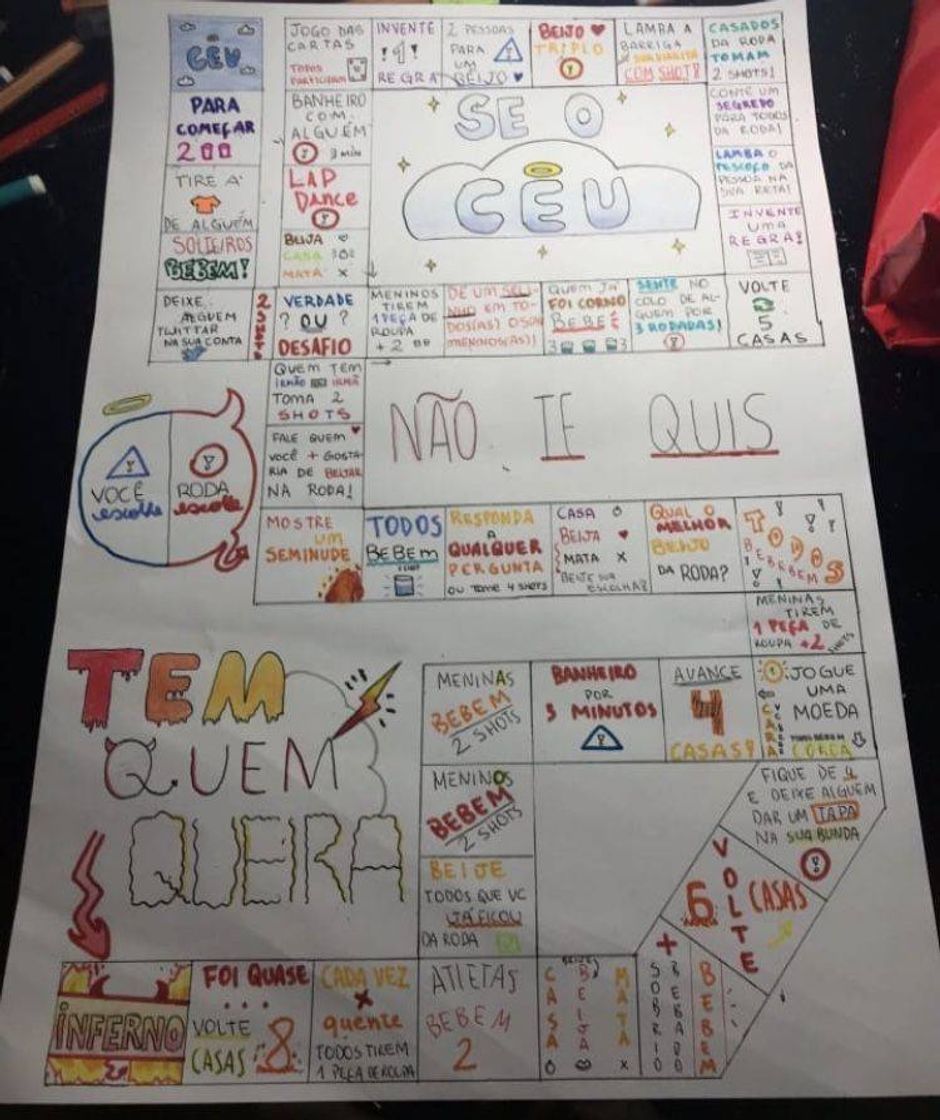 CÉU
PARA
COMEÇAR
2
TIRE A
DE ALGUÉM
SOLTEIROS
BEBEM!
DEIXE
ALGUEM
TWITTAR
NA SUA CONTA
2 SHOTS
VERDADE
? OU ?
DESAFIO
BEIJA
CASA
MATA X
LAP
DANCE
BANHEIRO
COM
ALGUÉM
3 min
JOGO DAS
CARTAS
TODOS
PARTICIPAM
INVENTE
1
REGRA
2 PESSOAS
PARA
UM
BEIJO
BEIJO
TRIPLO
LAMBA A
BARRIGA
COM SHOT!
CASADOS
DA RODA
TOMAM
2 SHOTS!
CONTE UM
SEGREDO
PARA TODOS
DA RODA!
LAMBA O
PESCOÇO DA
PESSOA NA
SUA RETA!
INVENTE
UMA
REGRA!
VOLTE
5
CASAS
SENTE NO
COLO DE AL-
GUEM POR
3 RODADAS!
QUEM JÁ
FOI CORNO
BEBE
3 3
DE UM SELI-
NHO EM TO-
DOS(AS) OS(AS)
MENINOS(AS)!
MENINOS
TIREM
1 PEÇA DE
ROUPA
+ 2
SE O
CÉU
NÃO TE QUIS
QUEM TEM
IRMÃO OU IRMÃ
TOMA 2
SHOTS
FALE QUEM
VOCÊ + GOSTA-
RIA DE BEIJAR
NA RODA!
VOCÊ
escolhe
RODA
escolhe
MOSTRE
UM
SEMINUDE
TODOS
BEBEM
RESPONDA
A
QUALQUER
PERGUNTA
OU TOME 4 SHOTS
CASA
BEIJA
MATA X
BEIJE SUA
ESCOLHA!
QUAL O
MELHOR
BEIJO
DA RODA?
TODOS
BEBEM
MENINAS
TIREM
1 PEÇA DE
ROUPA +2
SHOTS
JOGUE
UMA
MOEDA
CARA
COROA
AVANCE
4
CASAS!
BANHEIRO
POR
3 MINUTOS
MENINAS
BEBEM
2 SHOTS
MENINOS
BEBEM
2 SHOTS
BEIJE
TODOS QUE VC
JÁ FICOU
DA RODA
TEM
QUEM
QUEIRA
FIQUE DE 4
E DEIXE ALGUEM
DAR UM TAPA
NA SUA BUNDA
VOLTE
6 CASAS
+
SOBRIO
BEBADO
BEBEM
CASA
BEIJA
MATA
X
ATLETAS
BEBEM
2
CADA VEZ
+
quente
TODOS TIREM
1 PEÇA DE ROUPA
FOI QUASE
...
VOLTE
CASAS 8
INFERNO